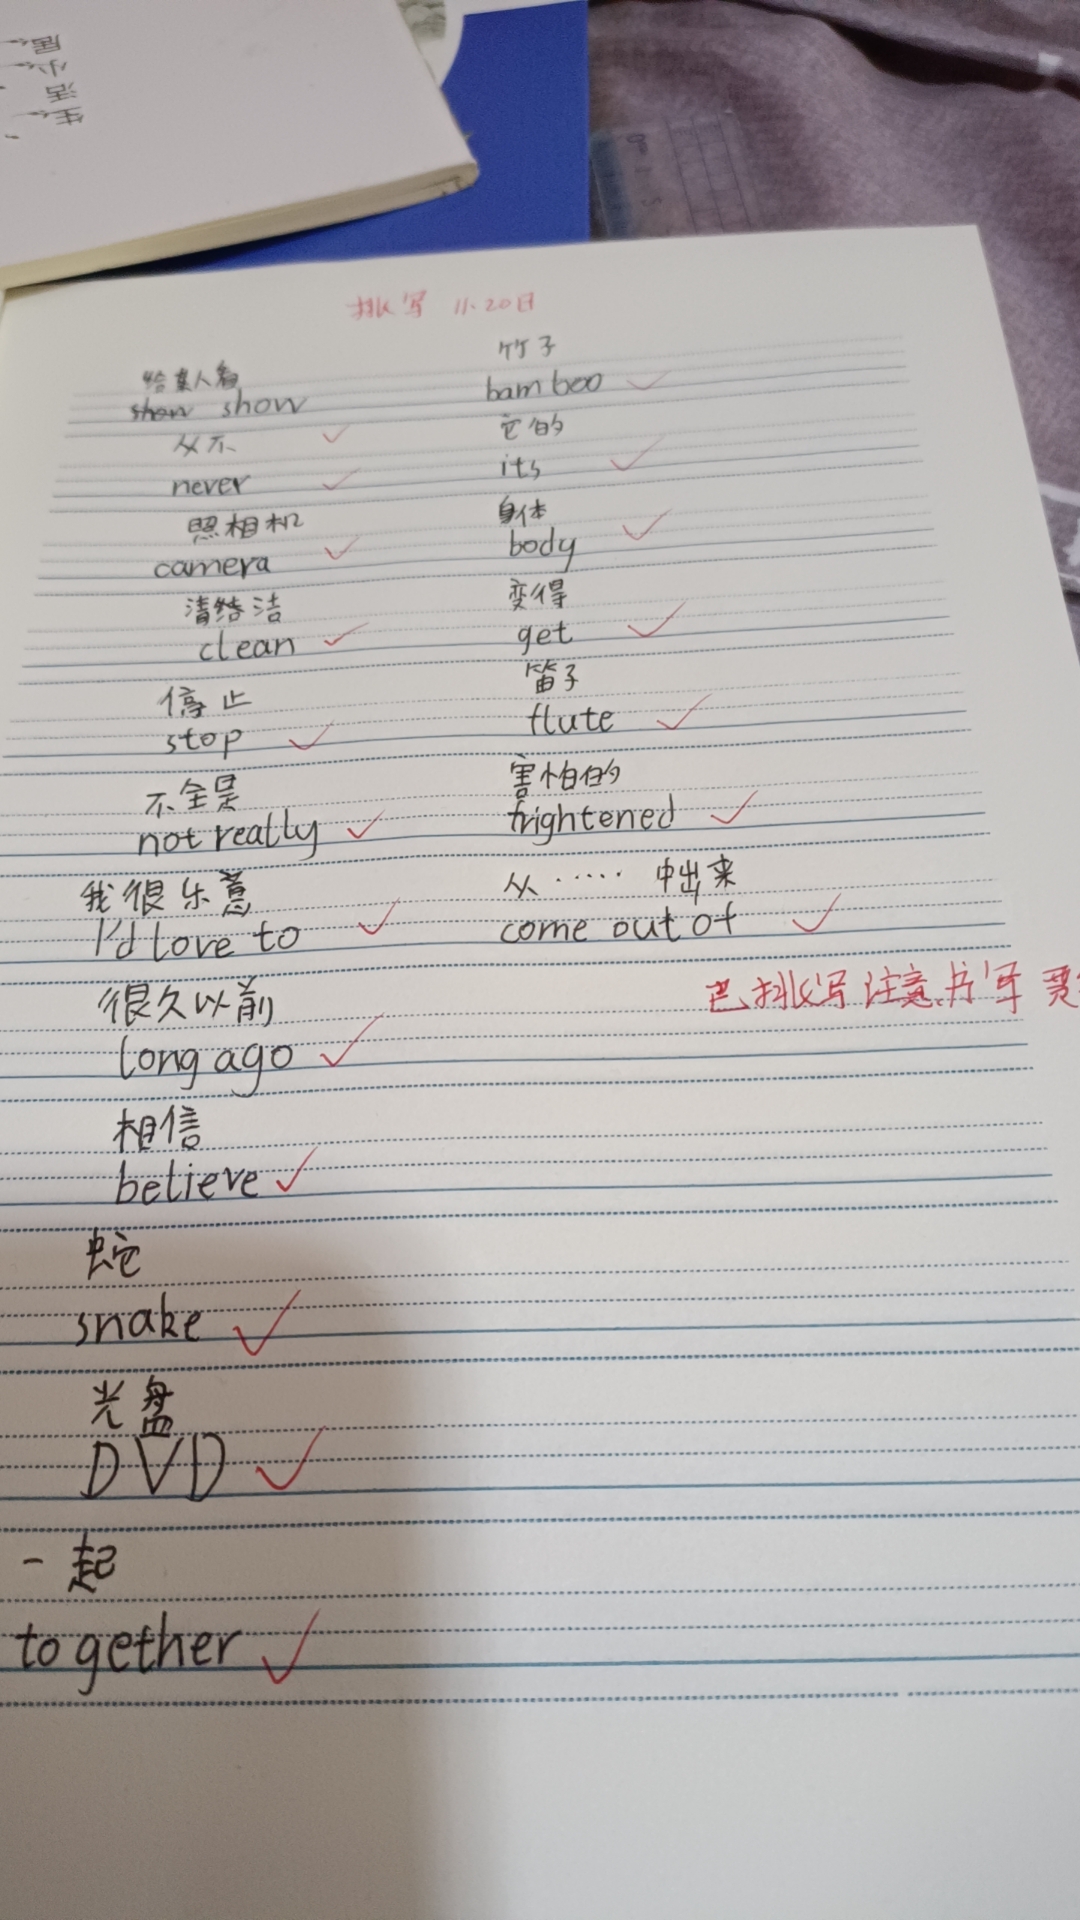 生活
小
居
批写 11.20日
给某人看
show show
从不
never
照相机
camera
清洁
clean
停止
stop
不全是
not really
我很乐意
I'd love to
很久以前
long ago
相信
believe
蛇
snake
光盘
DVD
一起
together
竹子
bamboo
它的
its
身体
body
变得
get
笛子
flute
害怕的
frightened
从…… 中出来
come out of
已批写 注意书写 要